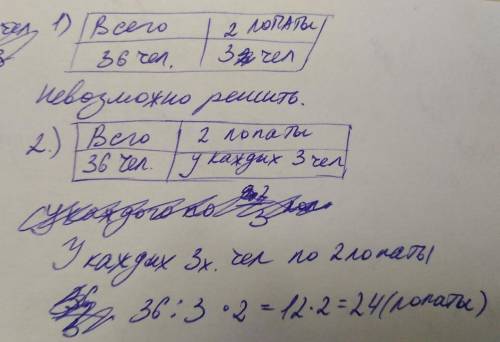 чел
1) Всего 2 лопаты
36 чел. 3х чел
Невозможно решить.
2.) Всего 2 лопаты
36 чел. у каждих 3 чел
У каждих 3х. чел по 2 лопаты
36 : 3 · 2 = 12 · 2 = 24 (лопаты)